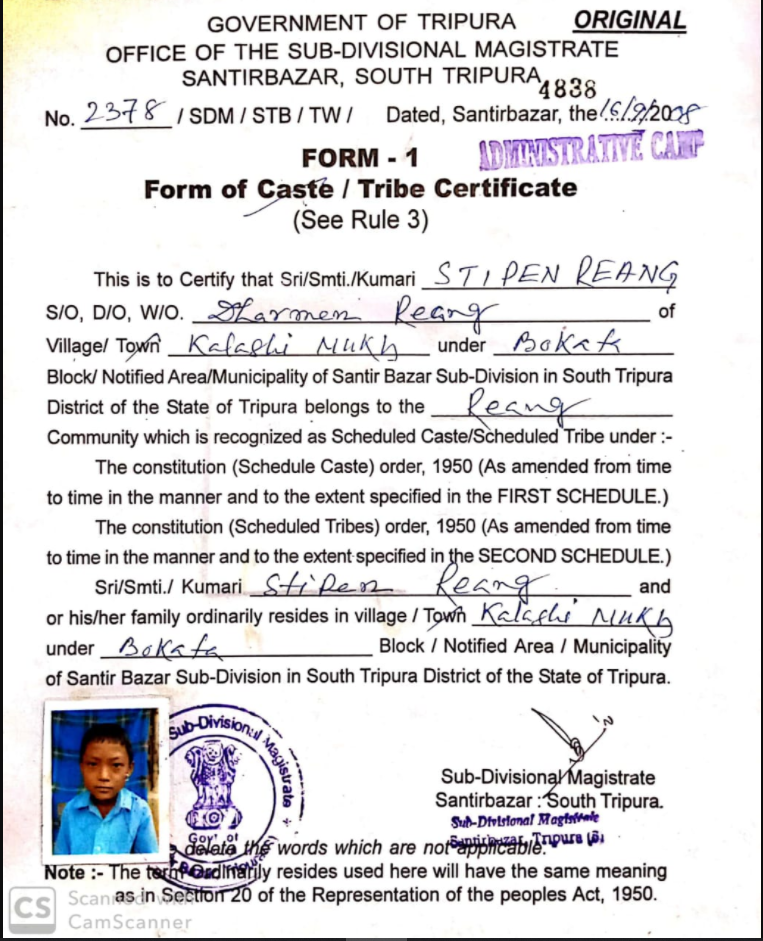 GOVERNMENT OF TRIPURA ORIGINAL
OFFICE OF THE SUB-DIVISIONAL MAGISTRATE
SANTIRBAZAR, SOUTH TRIPURA
4838
No. 2378 / SDM / STB / TW / Dated, Santirbazar, the 16/9/2008
ADMINISTRATIVE CAMP
FORM - 1
Form of Caste / Tribe Certificate
(See Rule 3)
This is to Certify that Sri/Smti./Kumari STIPEN REANG
S/O, D/O, W/O. Dharmen Reang of
Village/ Town Kalashi Mukh under Bokafa
Block/ Notified Area/Municipality of Santir Bazar Sub-Division in South Tripura
District of the State of Tripura belongs to the Reang
Community which is recognized as Scheduled Caste/Scheduled Tribe under :-
The constitution (Schedule Caste) order, 1950 (As amended from time
to time in the manner and to the extent specified in the FIRST SCHEDULE.)
The constitution (Scheduled Tribes) order, 1950 (As amended from time
to time in the manner and to the extent specified in the SECOND SCHEDULE.)
Sri/Smti./ Kumari Stipen Reang and
or his/her family ordinarily resides in village / Town Kalashi Mukh
under Bokafa Block / Notified Area / Municipality
of Santir Bazar Sub-Division in South Tripura District of the State of Tripura.
Sub-Divisional Magistrate
Gov't of
Sub-Divisional Magistrate
Santirbazar : South Tripura.
Sub-Divisional Magistrate
Santirbazar, Tripura (S)
delete the words which are not applicable.
Note :- The term Ordinarily resides used here will have the same meaning
as in Section 20 of the Representation of the peoples Act, 1950.
CS Scanned with
CamScanner